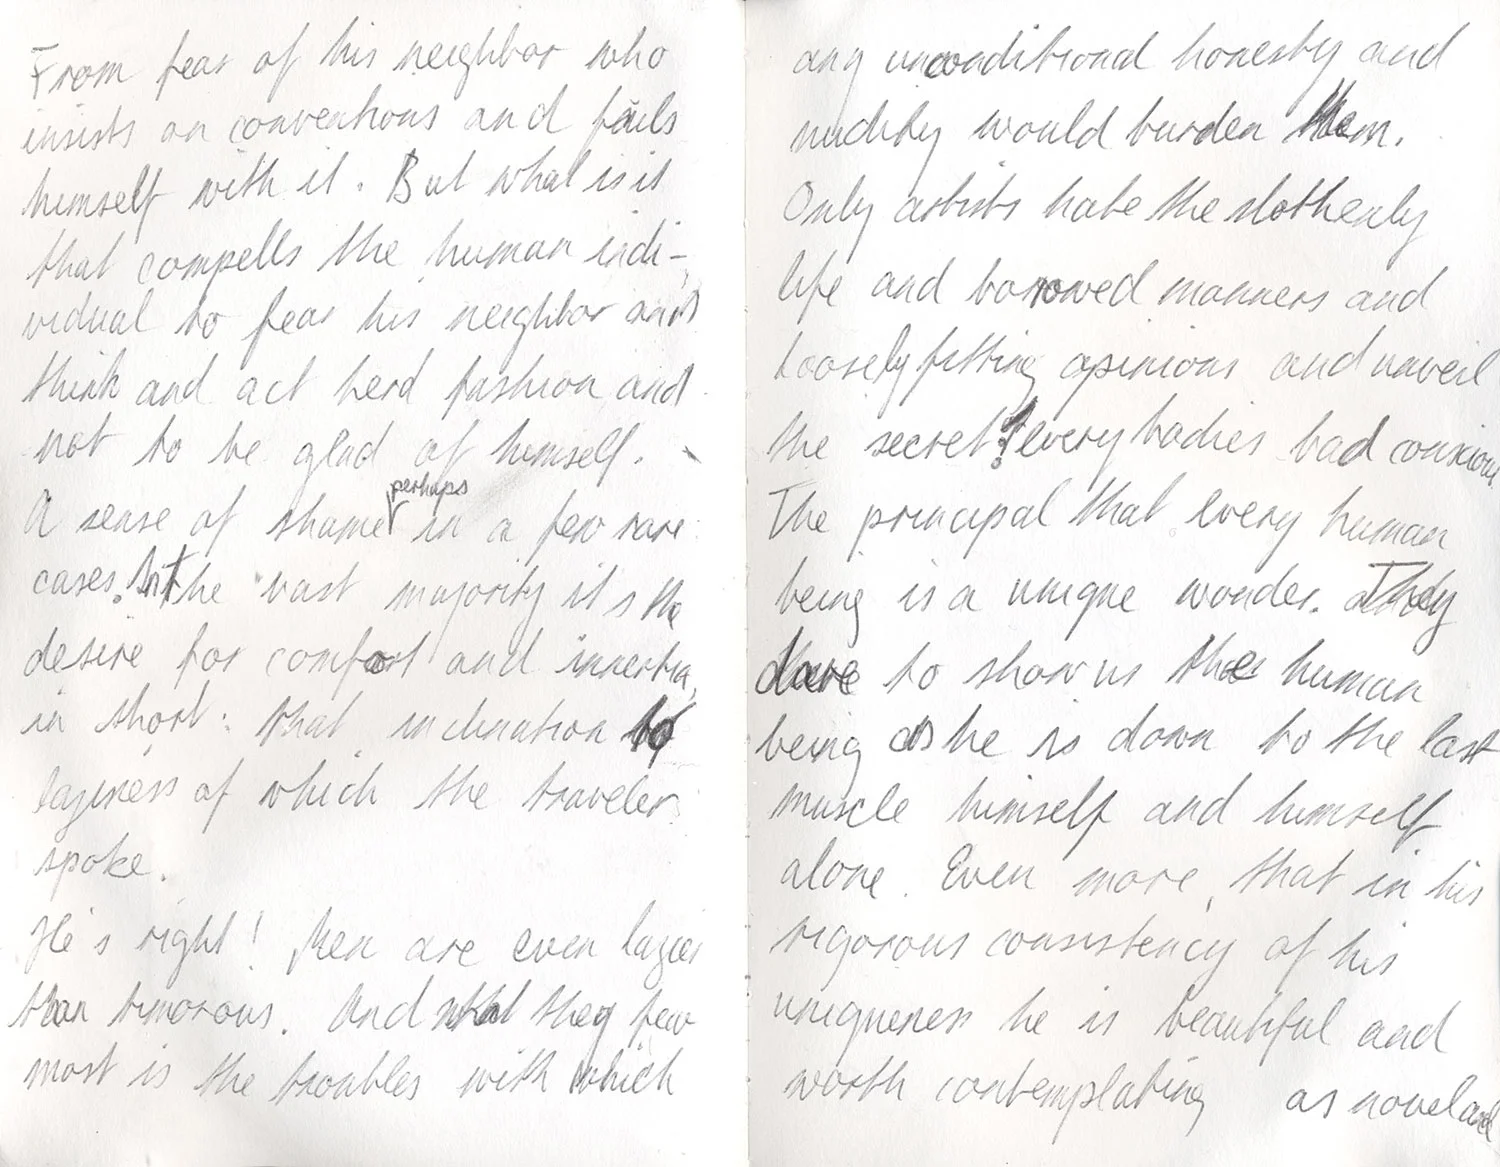 From fear of his neighbor who
insists on conventions and fails
himself with it. But what is it
that compells the human indi-
vidual to fear his neighbor and
think and act herd fashion and
not to be glad of himself.
A sense of shame perhaps in a few rare
cases. In the vast majority it s the
desire for comfort and innertia,
in short: that inclination to
laziness of which the traveler
spoke.
He s right! Men are even lazier
than timorous. And what they fear
most is the troubles with which
any unconditional honesty and
nudity would burden them.
Only artists hate the slothenly
life and borrowed manners and
loosely fitting opinions and unveil
the secret: every bodies bad
The principal that every human
being is a unique wonder. They
dare to show us the human
being as he is down to the last
muscle himself and himself
alone. Even more, that in his
rigorous consistency of his
uniqueness he is beautiful and
worth contemplating as novel and